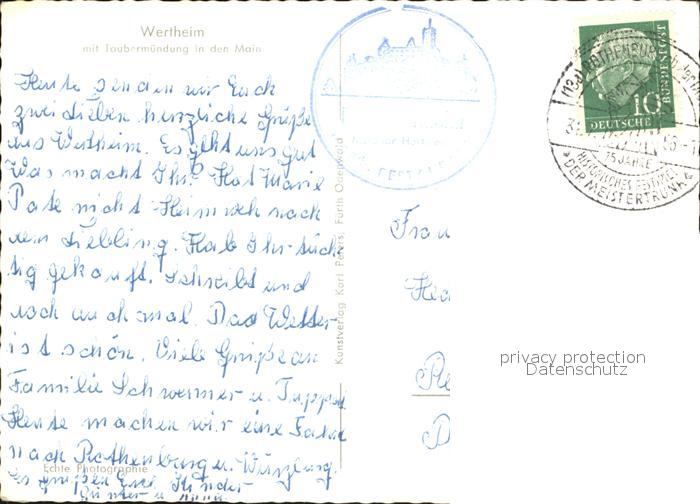 Wertheim
mit Taubermündung in den Main
Heute senden wir Euch
zwei Lieben herzliche Grüße
aus Wertheim. Es geht uns gut
Was macht Ihr. Hat Marie
Pate nicht Heimweh nach
dem Liebling. Hab Ihr tüch-
tig gekauft. Schreibt und
noch auch mal. Das Wetter
ist schön. Viele Grüße an
Familie Schwermer u.
Heute machen wir eine Fahrt
nach Rothenburg u. Würzburg.
Echte Photographie
Es grüßen Eure Kinder
Günter u.
Kunstverlag Karl Peters, Fürth Odenwald
FESTSPIEL
Frau
DEUTSCHE
BUNDESPOST
10
ROTHENBURG
75 JAHRE
HISTORISCHES FESTSPIEL
DER MEISTERTRUNK
privacy protection
Datenschutz